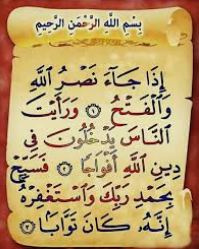 بِسْمِ اللَّهِ الرَّحْمَنِ الرَّحِيمِ
إِذَا جَاءَ نَصْرُ اللَّهِ
وَالْفَتْحُ ١ وَرَأَيْتَ
النَّاسَ يَدْخُلُونَ فِي
دِينِ اللَّهِ أَفْوَاجًا ٢ فَسَبِّحْ
بِحَمْدِ رَبِّكَ وَاسْتَغْفِرْهُ
إِنَّهُ كَانَ تَوَّابًا ٣